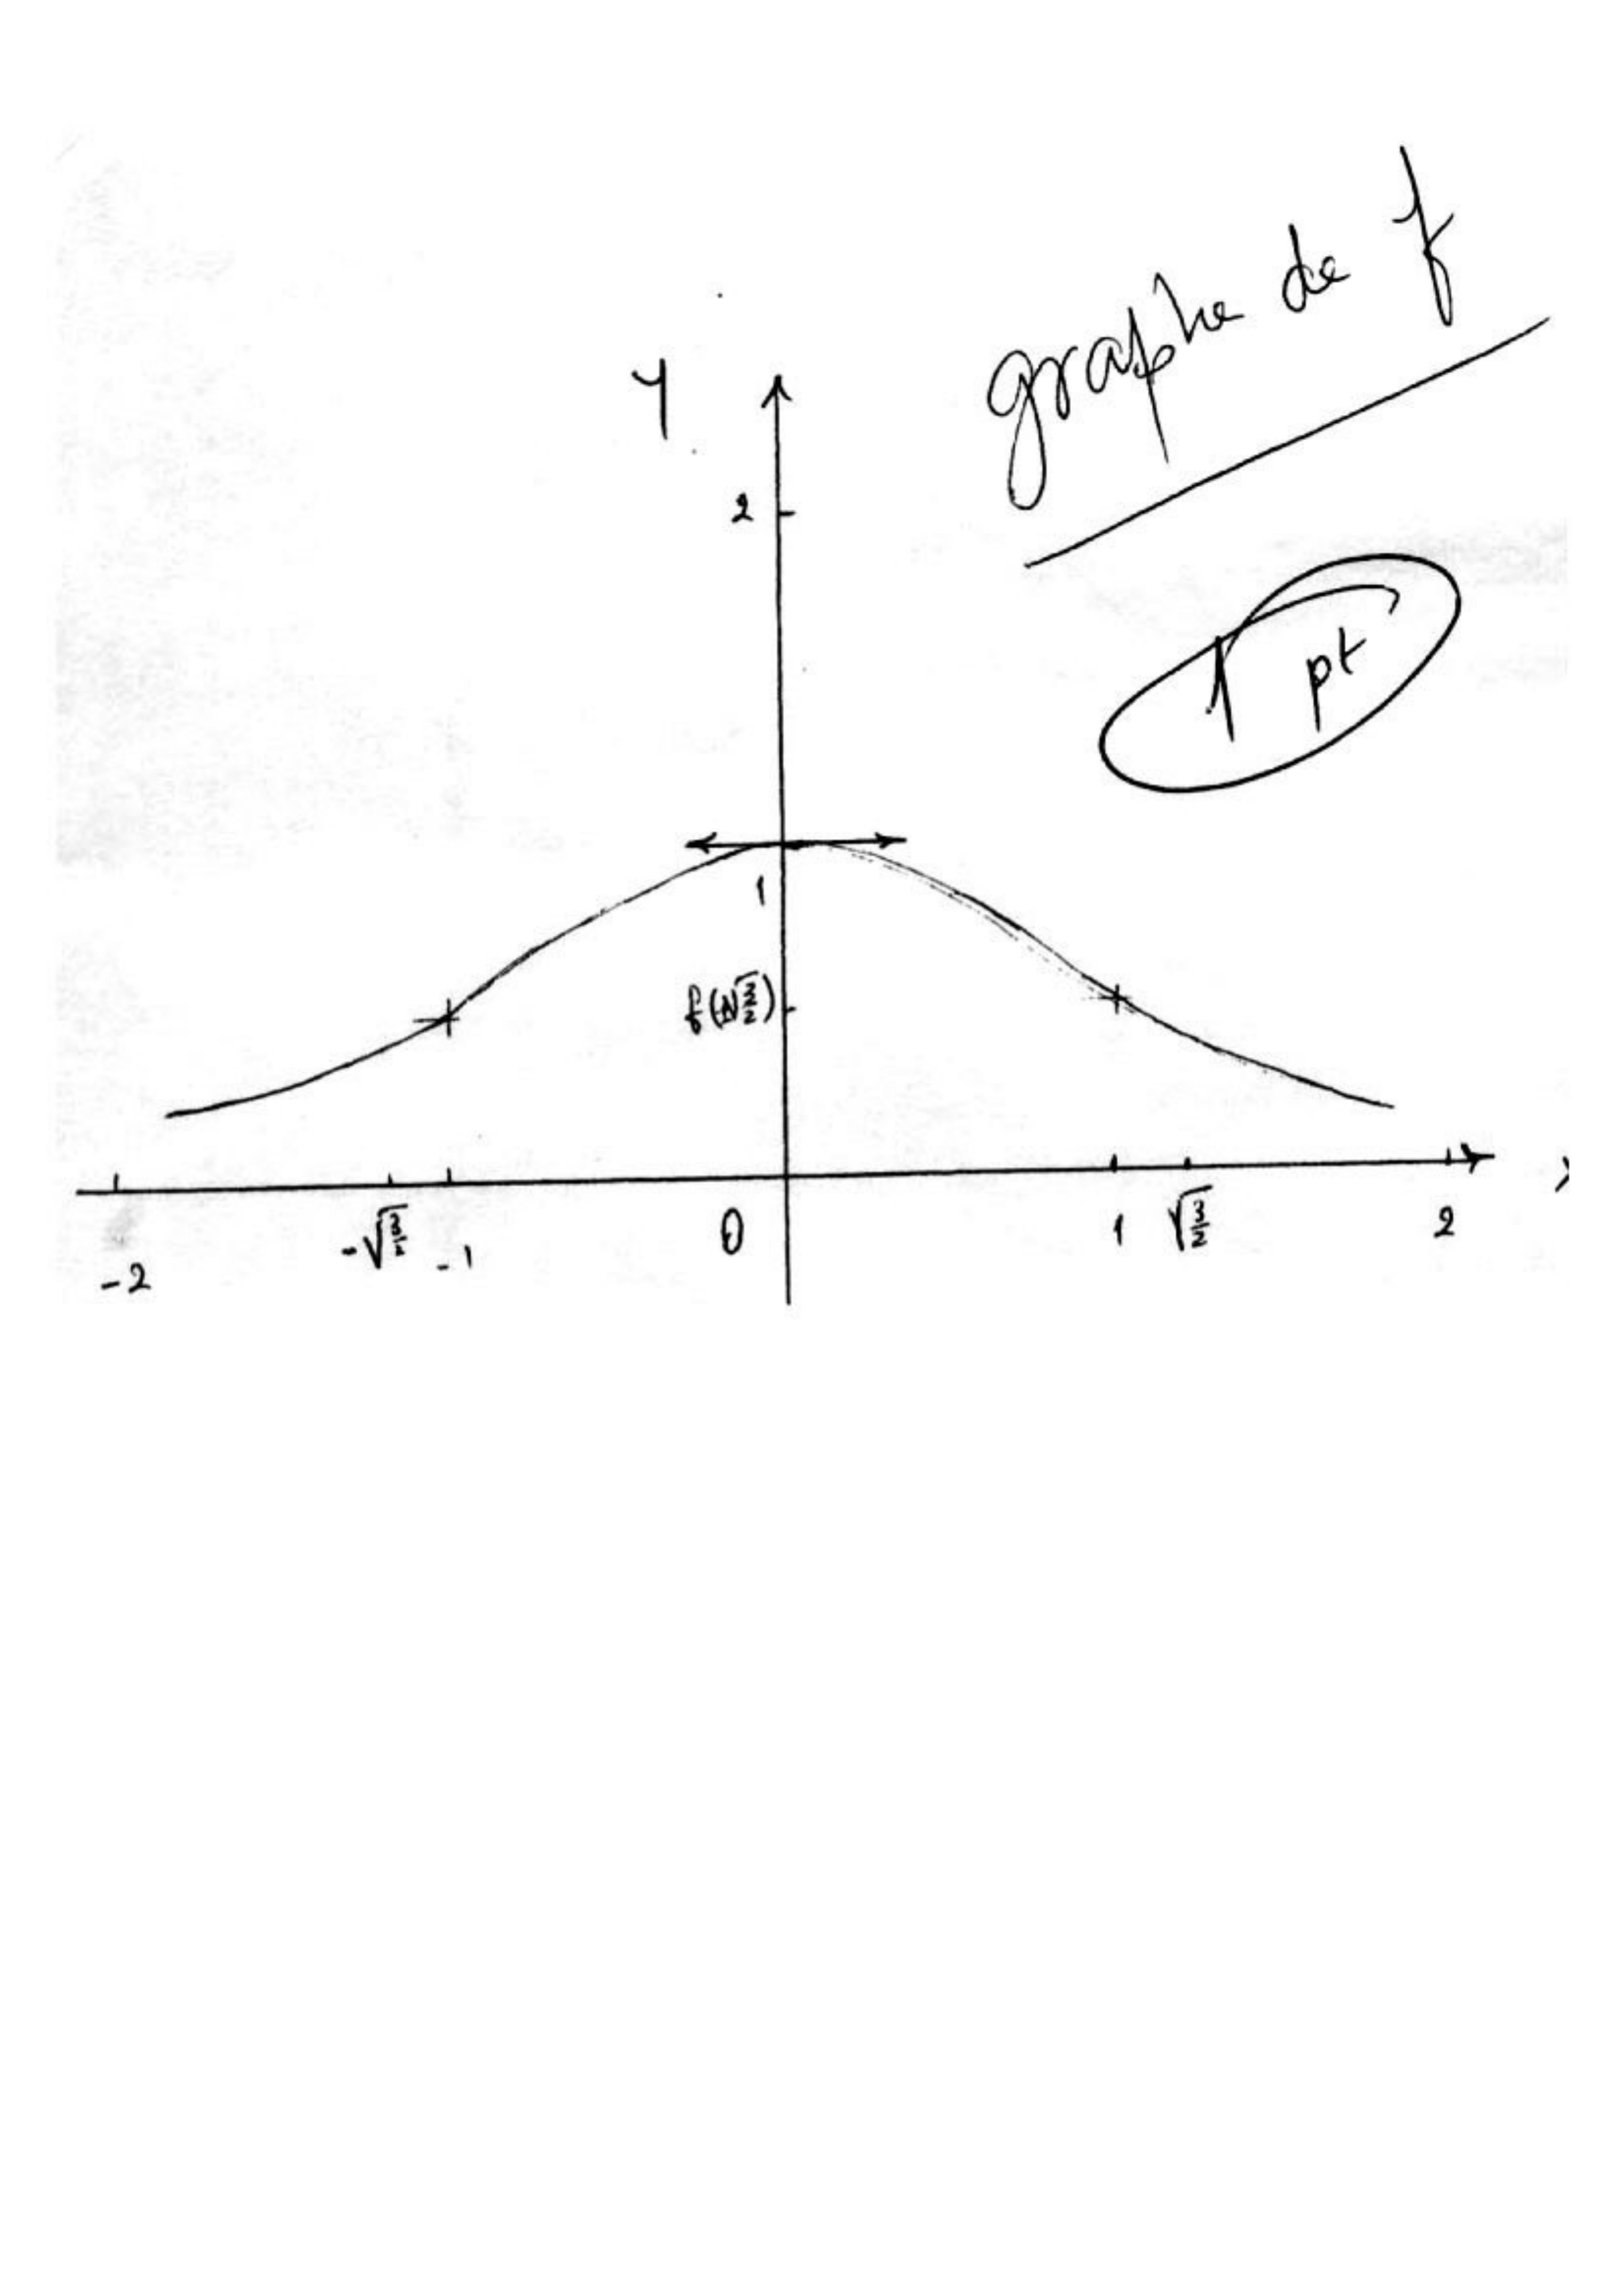 graphe de f
Y
2
1 pt
1
f(√3/2)
-2
-√3/2
-1
0
1
√3/2
2